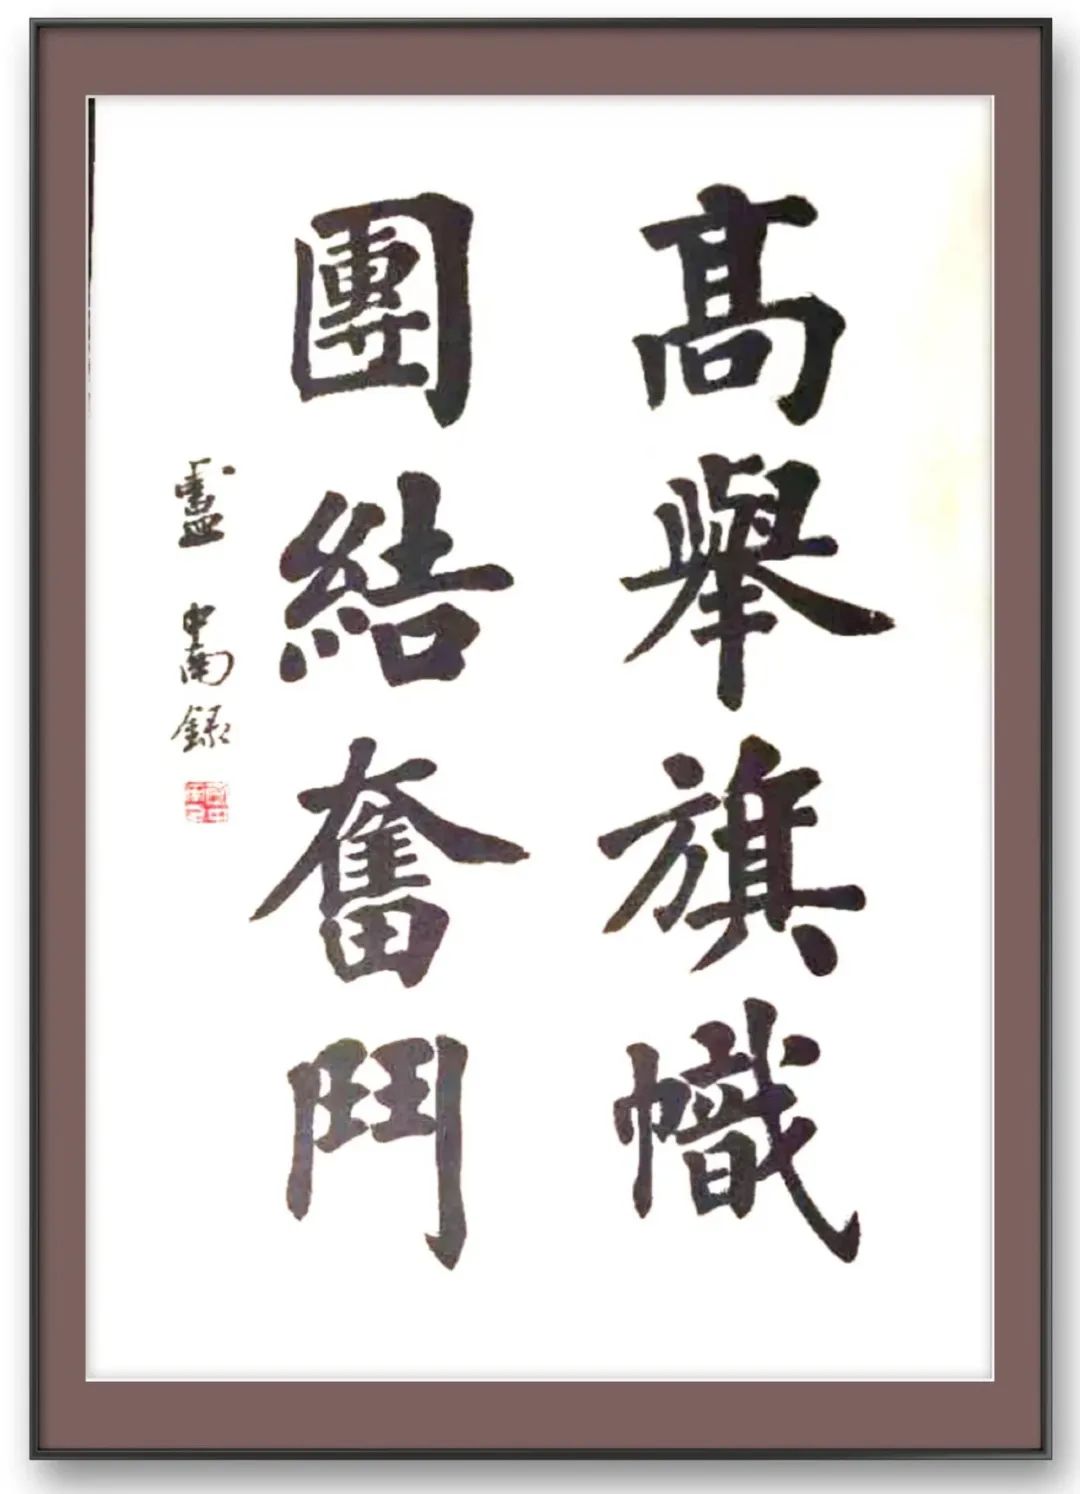 高舉旗幟
團結奮鬥
盧中南錄